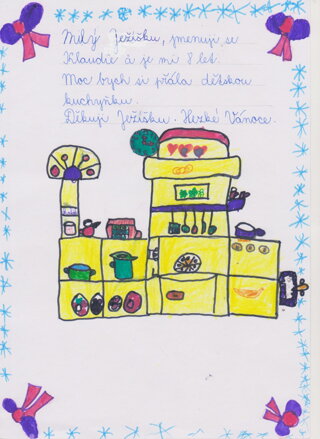 Milý Ježíšku, jmenuji se
Klaudie a je mi 8 let.
Moc bych si přála dětskou
kuchyňku.
Děkuji Ježíšku. Hezké Vánoce.